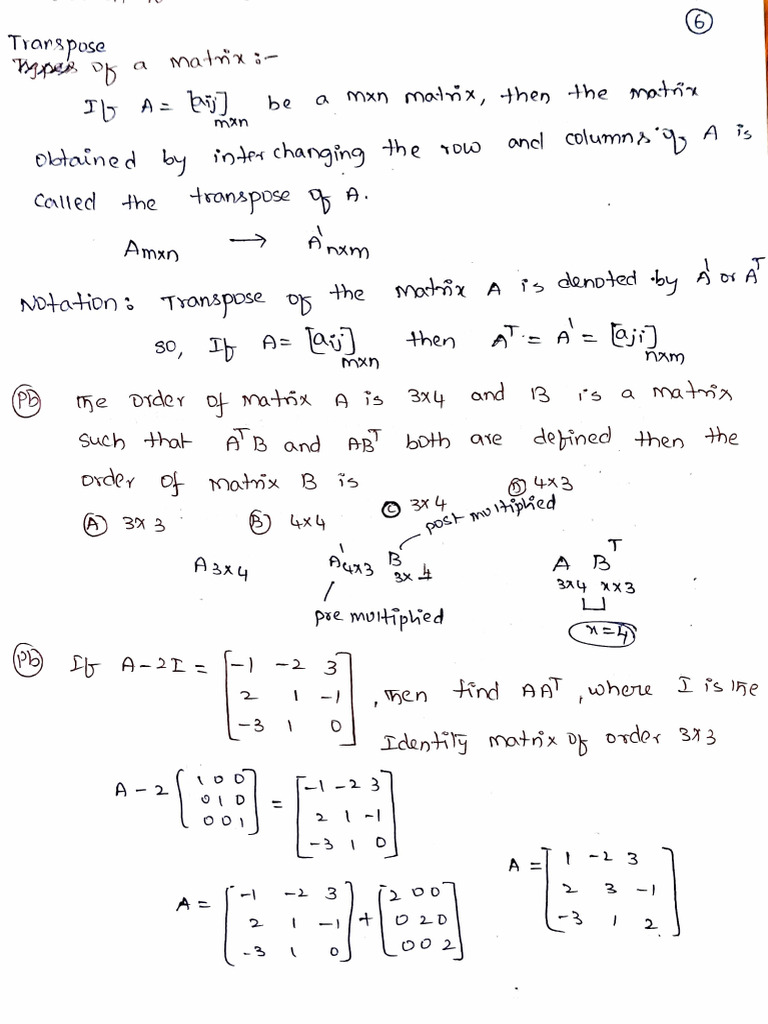 6
Transpose
of a matrix :-
If A = [aij]mxn be a mxn matrix, then the matrix
obtained by interchanging the row and columns of A is
called the transpose of A.
Amxn → A'nxm
Notation: Transpose of the matrix A is denoted by A' or Aᵀ
so, If A = [aij]mxn then Aᵀ = A' = [aji]nxm
Pb The order of matrix A is 3x4 and B is a matrix
such that AᵀB and ABᵀ both are defined then the
order of matrix B is
A 3x3 B 4x4 C 3x4 D 4x3
post multiplied
A3x4 A'4x3 B3x4 A3x4 Bᵀxx3
pre multiplied x=4
Pb If A-2I = [-1 -2 3
2 1 -1 , then find AAᵀ, where I is the
-3 1 0] Identity matrix of order 3x3
A-2 [1 0 0 = [-1 -2 3
0 1 0 2 1 -1
0 0 1] -3 1 0]
A = [-1 -2 3 + [2 0 0 A = [1 -2 3
2 1 -1 0 2 0 2 3 -1
-3 1 0] 0 0 2] -3 1 2]